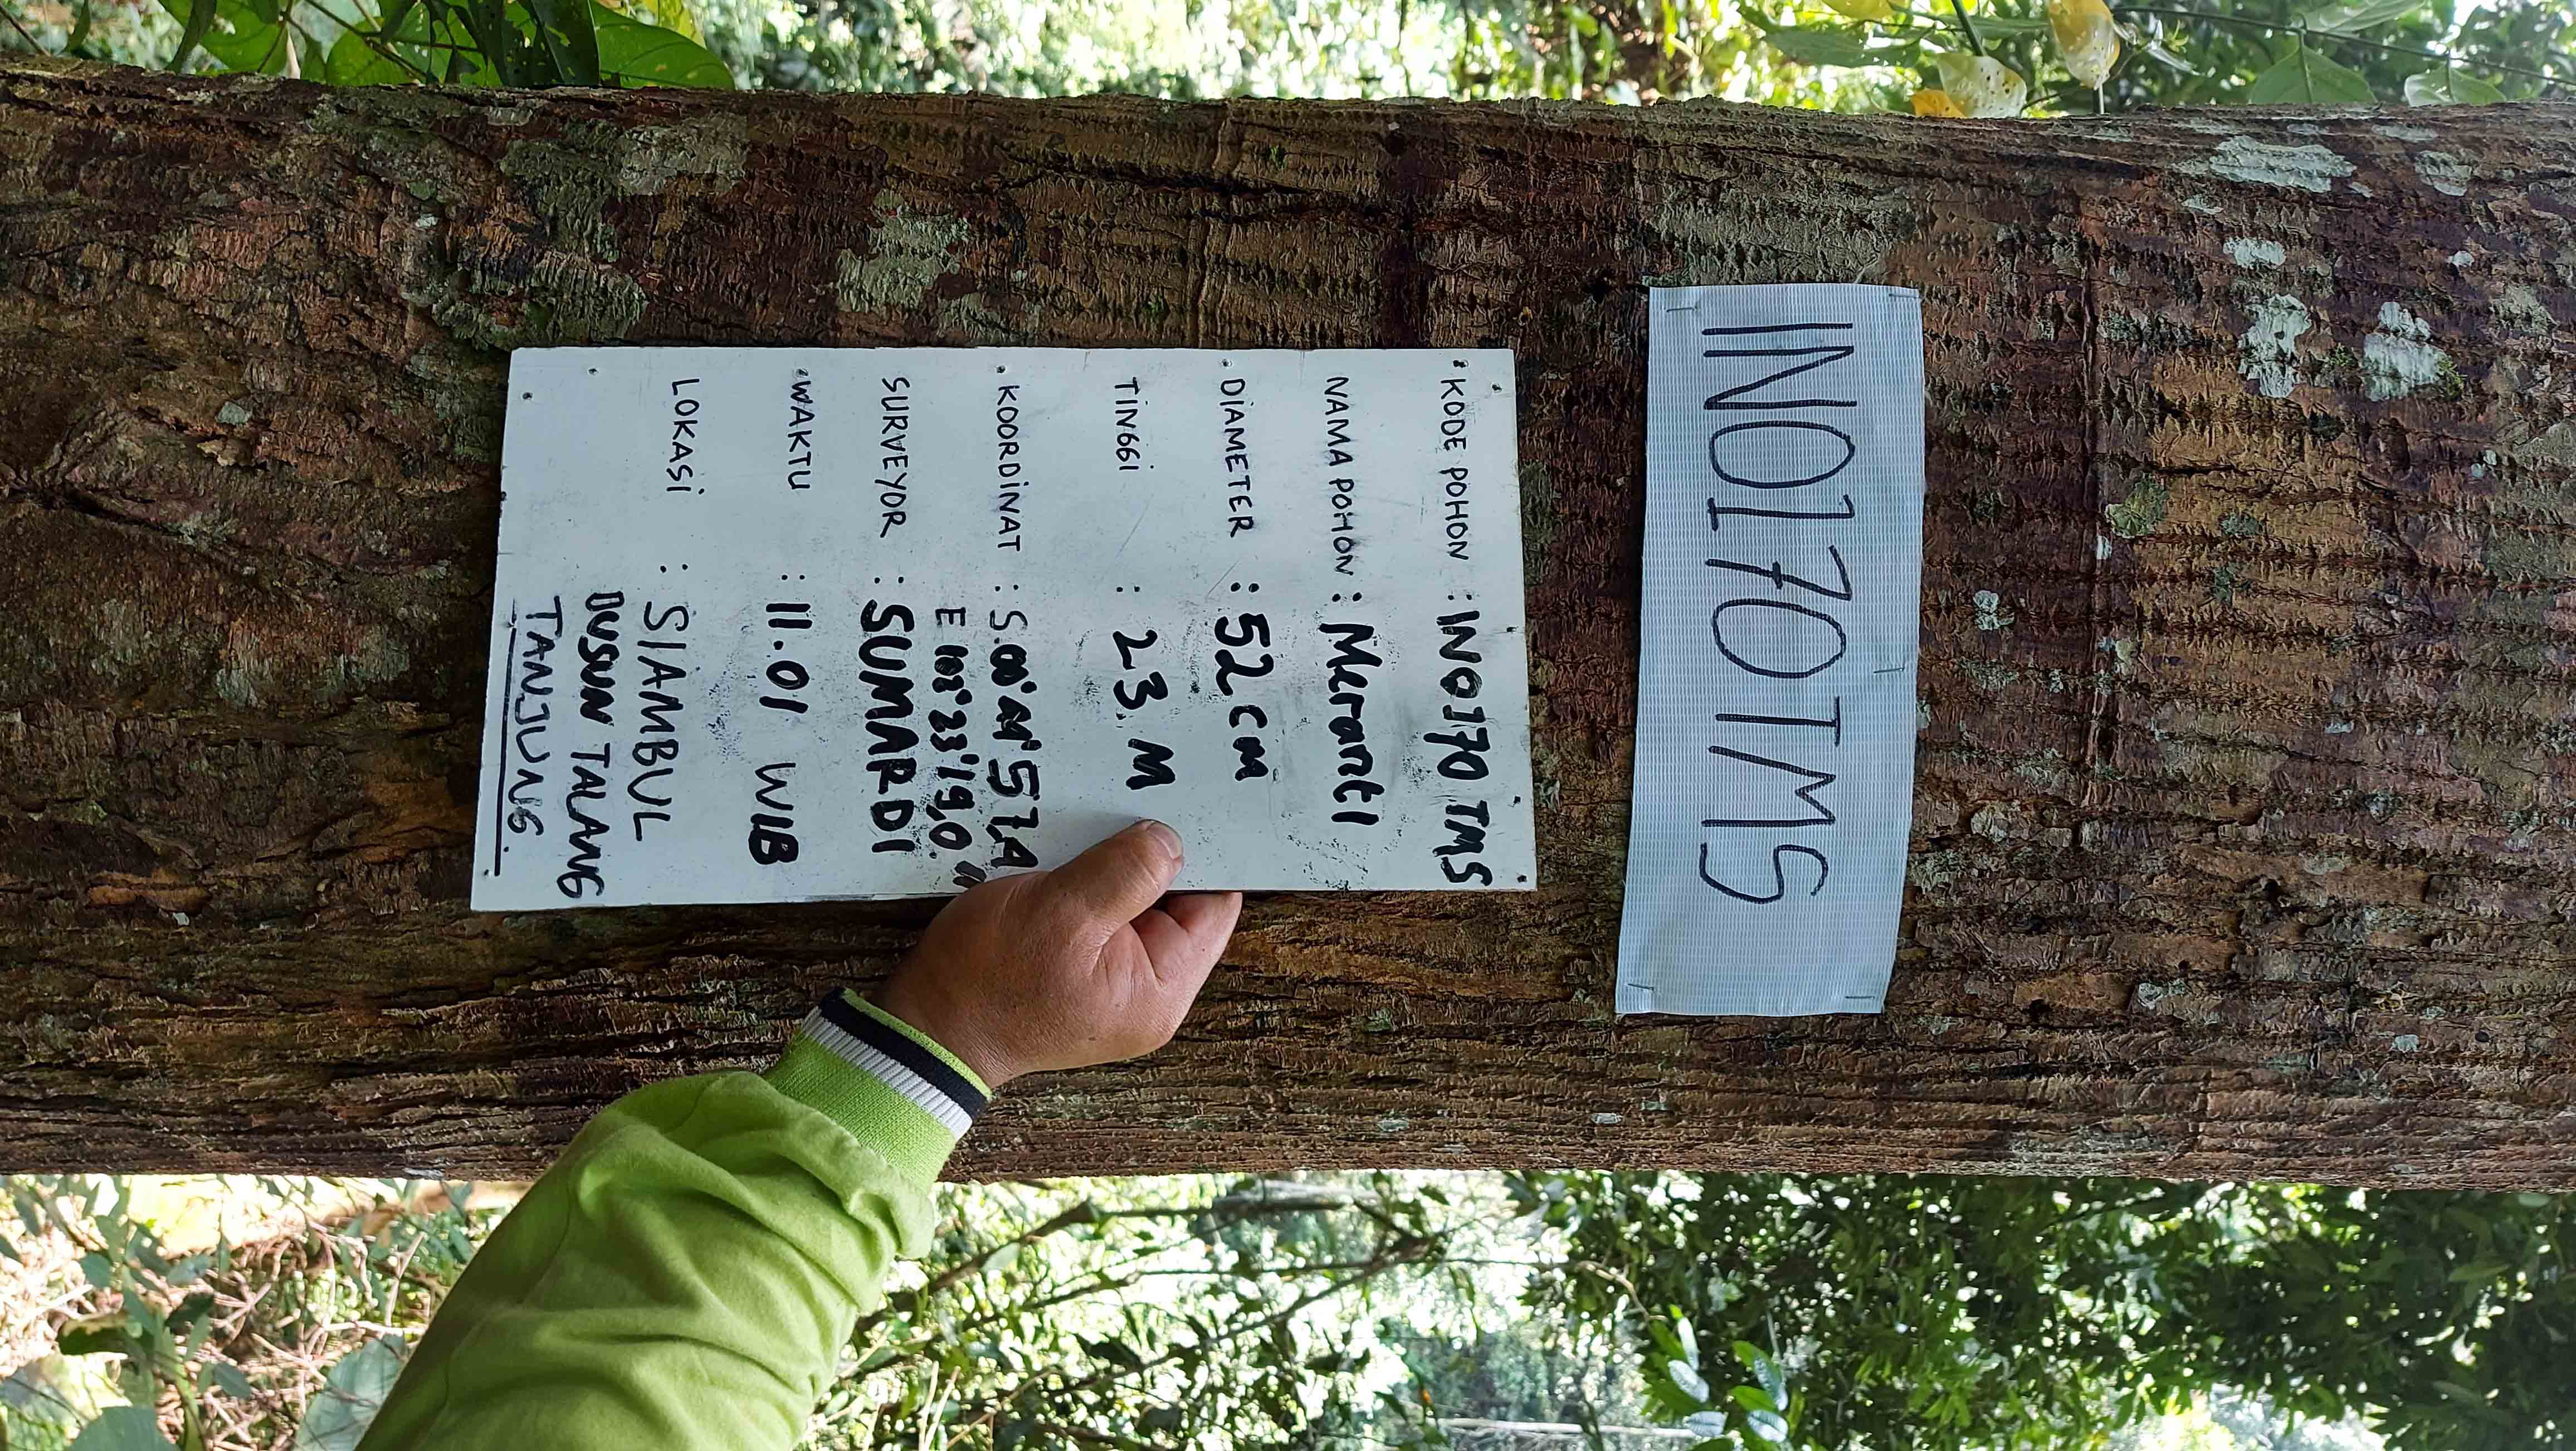 INO170TMS
KODE POHON : INO170 TMS
NAMA POHON : Meranti
DIAMETER : 52 cm
TINGGI : 23 M
KOORDINAT : S.00°44'57,4
E 102°23'19,0"
SURVEYOR : SUMARDI
WAKTU : 11.01 WIB
LOKASI : SIAMBUL
DUSUN TALANG
TANJUNG